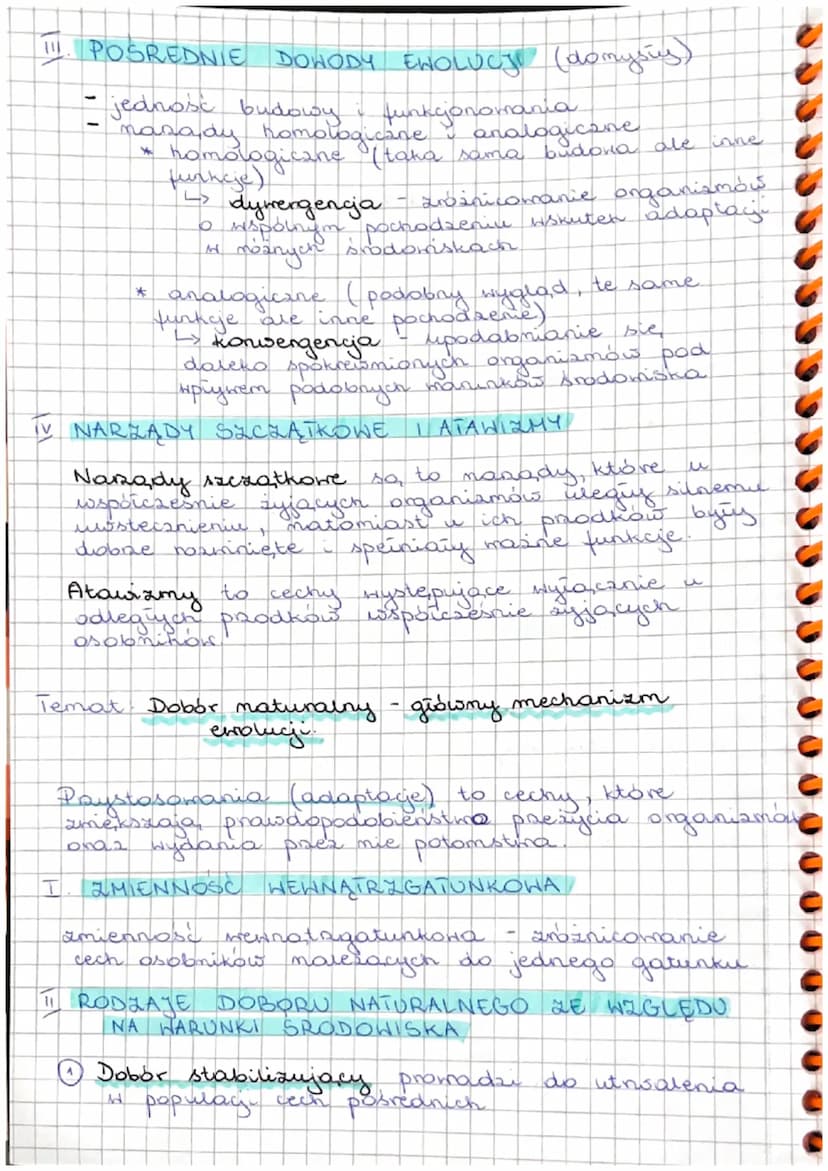 III. POŚREDNIE DOWODY EWOLUCJI (domysły)
- jedność budowy i funkcjonowania
- narządy homologiczne i analogiczne
* homologiczne (taka sama budowa ale inne
funkcje)
↳ dywergencja - zróżnicowanie organizmów
o wspólnym pochodzeniu wskutek adaptacji
w różnych środowiskach
* analogiczne (podobny wygląd, te same
funkcje ale inne pochodzenie)
↳ konwergencja - upodabnianie się
daleko spokrewnionych organizmów pod
wpływem podobnych warunków środowiska
IV NARZĄDY SZCZĄTKOWE I ATAWIZMY
Narządy szczątkowe są to narządy, które u
współcześnie żyjących organizmów uległy silnemu
uwstecznieniu, natomiast u ich przodków były
dobrze rozwinięte i spełniały ważne funkcje.
Atawizmy to cechy występujące wyłącznie u
odległych przodków współcześnie żyjących
osobników.
Temat: Dobór naturalny - główny mechanizm
ewolucji.
Przystosowania (adaptacje) to cechy, które
zwiększają prawdopodobieństwo przeżycia organizmów
oraz wydania przez nie potomstwa.
I. ZMIENNOŚĆ WEWNĄTRZGATUNKOWA
zmienność wewnątrzgatunkowa - zróżnicowanie
cech osobników należących do jednego gatunku
II RODZAJE DOBORU NATURALNEGO ZE WZGLĘDU
NA WARUNKI ŚRODOWISKA
① Dobór stabilizujący prowadzi do utrwalenia
w populacji cech pośrednich